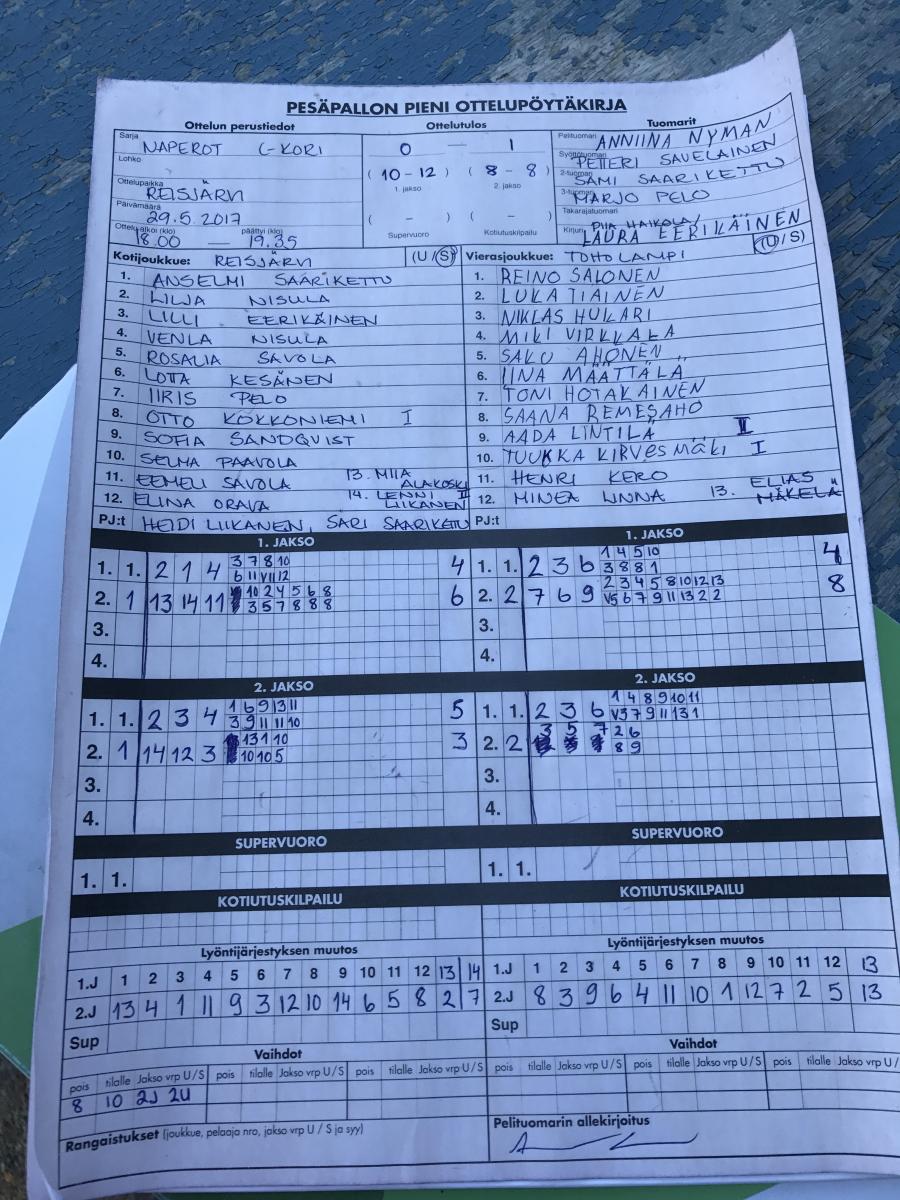 PESÄPALLON PIENI OTTELUPÖYTÄKIRJA
Ottelun perustiedot
Sarja NAPEROT C-KORI
Lohko
Ottelupaikka REISJÄRVI
Päivämäärä 29.5.2017
Ottelu alkoi (klo) 18.00 — päättyi (klo) 19.35
Ottelutulos
0 — 1
( 10 - 12 ) ( 8 - 8 )
1. jakso 2. jakso
( - ) ( - )
Supervuoro Kotiutuskilpailu
Tuomarit
Pelituomari ANNIINA NYMAN
Syöttötuomari PETTERI SAVELAINEN
2-tuomari SAMI SAARIKETTU
3-tuomari MARJO PELO
Takarajatuomari
Kirjuri PIIA HAIKOLA/
LAURA EERIKÄINEN
Kotijoukkue: REISJÄRVI (U/S)
1. ANSELMI SAARIKETTU
2. LILJA NISULA
3. LILLI EERIKÄINEN
4. VENLA NISULA
5. ROSALIA SAVOLA
6. LOTTA KESÄNEN
7. IIRIS PELO
8. OTTO KOKKONIEMI I
9. SOFIA SANDQVIST
10. SELMA PAAVOLA
11. EEMELI SAVOLA 13. MIIA ALAKOSKI
12. ELINA ORAVA 14. LENNI LIIKANEN II
PJ:t HEIDI LIIKANEN, SARI SAARIKETTU
Vierasjoukkue: TOHOLAMPI (U/S)
1. REINO SALONEN
2. LUKA TIAINEN
3. NIKLAS HUKARI
4. MIKI VIRKKALA
5. SAKU AHONEN
6. IINA MÄÄTTÄLÄ
7. TONI HOTAKAINEN
8. SAANA REMESAHO
9. AADA LINTILÄ II
10. TUUKKA KIRVESMÄKI I
11. HENRI KERO
12. MINEA LINNA 13. ELIAS MÄKELÄ
PJ:t
1. JAKSO
1. 1. 2 1 4 3 7 8 10 4
6 11 VII 12
2. 1 13 14 11 10 2 4 5 6 8 6
3 5 7 8 8 8
3.
4.
1. JAKSO
1. 1. 2 3 6 1 4 5 10 4
3 8 8 1
2. 2 7 6 9 2 3 4 5 8 10 12 13 8
V5 6 7 9 11 13 2 2
3.
4.
2. JAKSO
1. 1. 2 3 4 1 6 9 13 11 5
3 9 11 11 10
2. 1 14 12 3 13 1 10 3
10 10 5
3.
4.
2. JAKSO
1. 1. 2 3 6 1 4 8 9 10 11
V3 7 9 11 13 1
2. 2 3 5 7 2 6
8 9
3.
4.
SUPERVUORO
1. 1.
SUPERVUORO
1. 1.
KOTIUTUSKILPAILU
KOTIUTUSKILPAILU
Lyöntijärjestyksen muutos
1.J 1 2 3 4 5 6 7 8 9 10 11 12 13 14
2.J 13 4 1 11 9 3 12 10 14 6 5 8 2 7
Sup
Lyöntijärjestyksen muutos
1.J 1 2 3 4 5 6 7 8 9 10 11 12 13
2.J 8 3 9 6 4 11 10 1 12 7 2 5 13
Sup
Vaihdot
pois tilalle Jakso vrp U/S pois tilalle Jakso vrp U/S pois tilalle Jakso vrp U/S
8 10 2J 2U
Vaihdot
pois tilalle Jakso vrp U/S pois tilalle Jakso vrp U/S pois tilalle Jakso vrp U/S
Rangaistukset (joukkue, pelaaja nro, jakso vrp U / S ja syy)
Pelituomarin allekirjoitus